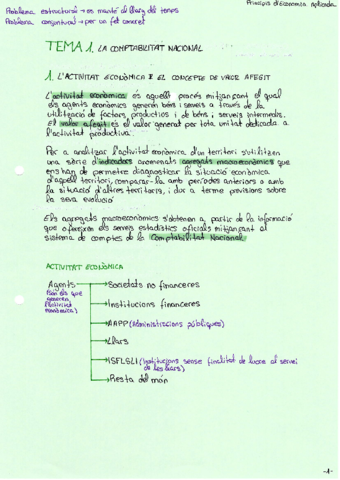 Problema estructural → es manté al llarg del temps
Problema conjuntural → per un fet concret
Principis d'Economia Aplicada
TEMA 1. LA COMPTABILITAT NACIONAL
1. L'ACTIVITAT ECONÒMICA I EL CONCEPTE DE VALOR AFEGIT
L'activitat econòmica és aquell procés mitjançant el qual
els agents econòmics generen béns i serveis a través de la
utilització de factors productius i de béns i serveis intermedis.
El valor afegit és el valor generat per tota unitat dedicada a
l'activitat productiva.
Per a analitzar l'activitat econòmica d'un territori s'utilitzen
una sèrie d'indicadors anomenats agregats macroeconòmics que
ens han de permetre diagnosticar la situació econòmica
d'aquell territori, comparar-la amb períodes anteriors o amb
la situació d'altres territoris, i dur a terme previsions sobre
la seva evolució.
Els agregats macroeconòmics s'obtenen a partir de la informació
que ofereixen els serveis estadístics oficials mitjançant el
sistema de comptes de la Comptabilitat Nacional.
ACTIVITAT ECONÒMICA
Agents → Societats no financeres
(són els que
generen
l'activitat
econòmica)
→ Institucions financeres
→ AAPP (Administracions públiques)
→ Llars
→ ISFLSLl (Institucions sense finalitat de lucre al servei
de les llars)
→ Resta del món
-1-